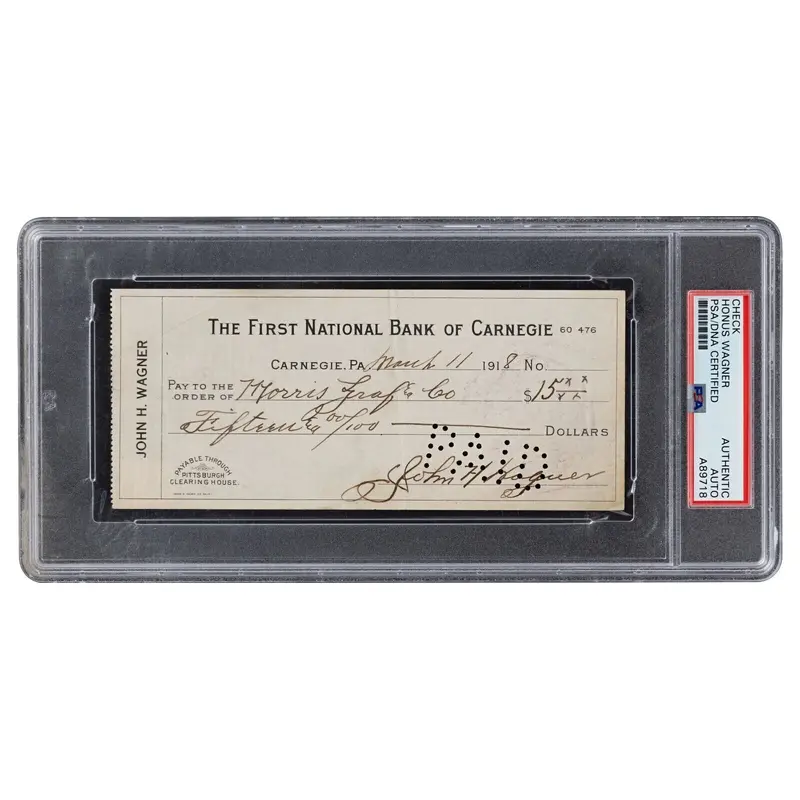 JOHN H. WAGNER
THE FIRST NATIONAL BANK OF CARNEGIE 60 476
CARNEGIE, PA. March 11 1918 No.
PAY TO THE
ORDER OF Morris Graf & Co $15 xx xx
Fifteen & 00/100 DOLLARS
PAYABLE THROUGH
PITTSBURGH
CLEARING HOUSE.
PAID
John H Wagner
CHECK
HONUS WAGNER
PSA/DNA CERTIFIED
PSA
AUTHENTIC
AUTO
A89718